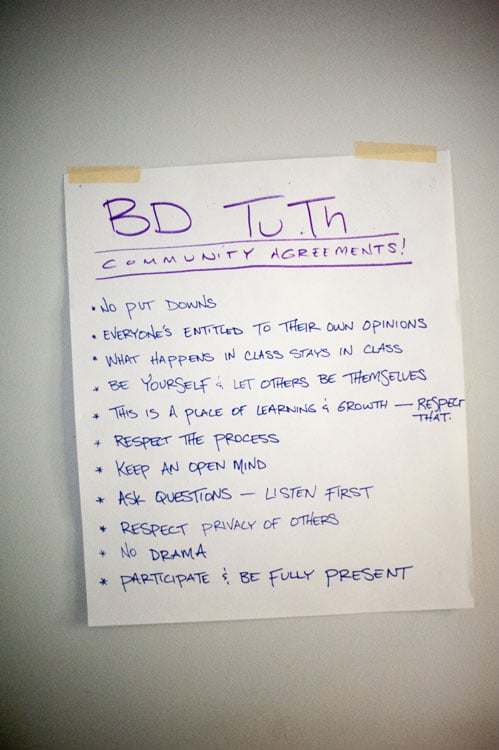 BD Tu.Th
COMMUNITY AGREEMENTS!
• NO PUT DOWNS
• EVERYONE'S ENTITLED TO THEIR OWN OPINIONS
* WHAT HAPPENS IN CLASS STAYS IN CLASS
* BE YOURSELF & LET OTHERS BE THEMSELVES
* THIS IS A PLACE OF LEARNING & GROWTH — RESPECT
THAT.
* RESPECT THE PROCESS
* KEEP AN OPEN MIND
* ASK QUESTIONS — LISTEN FIRST
* RESPECT PRIVACY OF OTHERS
* NO DRAMA
* PARTICIPATE & BE FULLY PRESENT